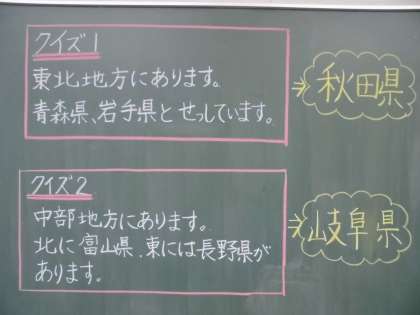 クイズ1
東北地方にあります。
青森県、岩手県とせっしています。
秋田県
クイズ2
中部地方にあります。
北に富山県、東には長野県が
あります。
岐阜県